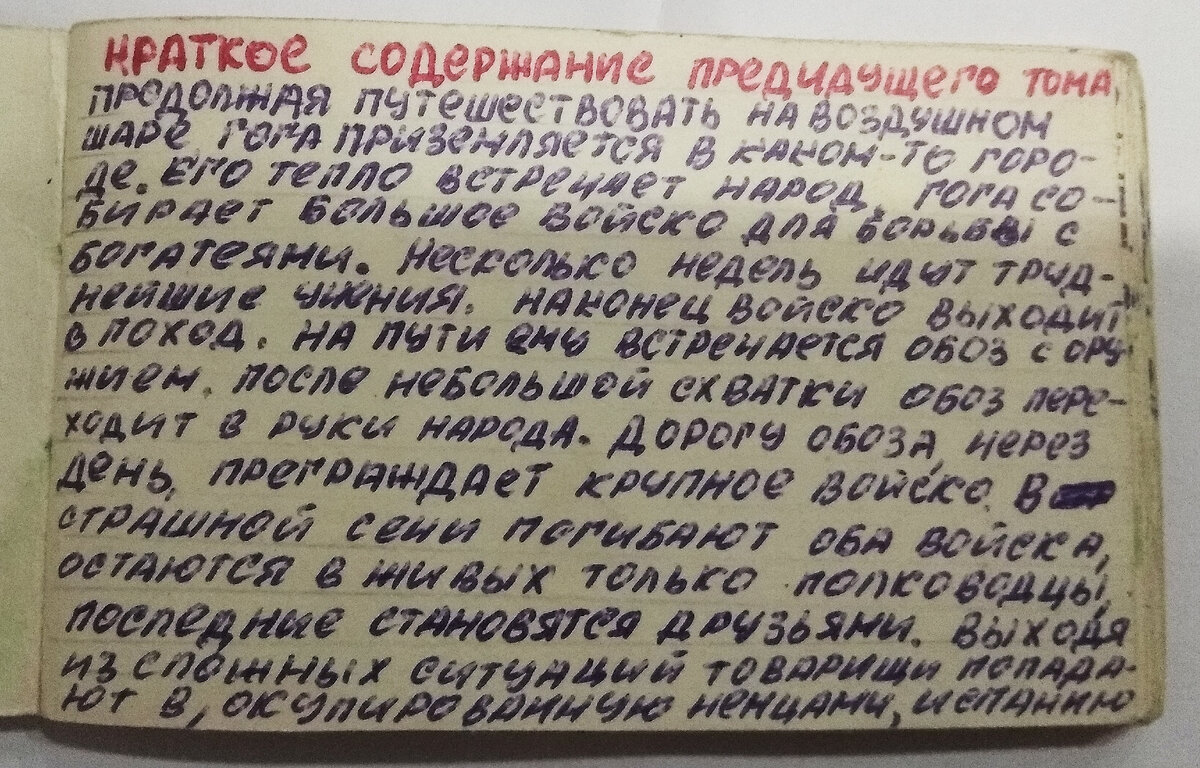 КРАТКОЕ СОДЕРЖАНИЕ ПРЕДИДУЩЕГО ТОМА.
ПРОДОЛЖАЯ ПУТЕШЕСТВОВАТЬ НА ВОЗДУШНОМ
ШАРЕ, ГОГА ПРИЗЕМЛЯЕТСЯ В КАКОМ-ТО ГОРО-
ДЕ. ЕГО ТЕПЛО ВСТРЕЧАЕТ НАРОД. ГОГА СО-
БИРАЕТ БОЛЬШОЕ ВОЙСКО ДЛЯ БОРЬБЫ С
БОГАТЕЯМИ. НЕСКОЛЬКО НЕДЕЛЬ ИДУТ ТРУД-
НЕЙШИЕ УЧЕНИЯ. НАКОНЕЦ ВОЙСКО ВЫХОДИТ
В ПОХОД. НА ПУТИ ЕМУ ВСТРЕЧАЕТСЯ ОБОЗ С ОРУ-
ЖИЕМ. ПОСЛЕ НЕБОЛЬШОЙ СХВАТКИ ОБОЗ ПЕРЕ-
ХОДИТ В РУКИ НАРОДА. ДОРОГУ ОБОЗА, ЧЕРЕЗ
ДЕНЬ, ПРЕГРАЖДАЕТ КРУПНОЕ ВОЙСКО. В
СТРАШНОЙ СЕЧИ ПОГИБАЮТ ОБА ВОЙСКА,
ОСТАЮТСЯ В ЖИВЫХ ТОЛЬКО ПОЛКОВОДЦЫ,
ПОСЛЕДНИЕ СТАНОВЯТСЯ ДРУЗЬЯМИ. ВЫХОДЯ
ИЗ СЛОЖНЫХ СИТУАЦИЙ ТОВАРИЩИ ПОПАДА-
ЮТ В, ОКУПИРОВАННУЮ НЕМЦАМИ, ИСПАНИЮ